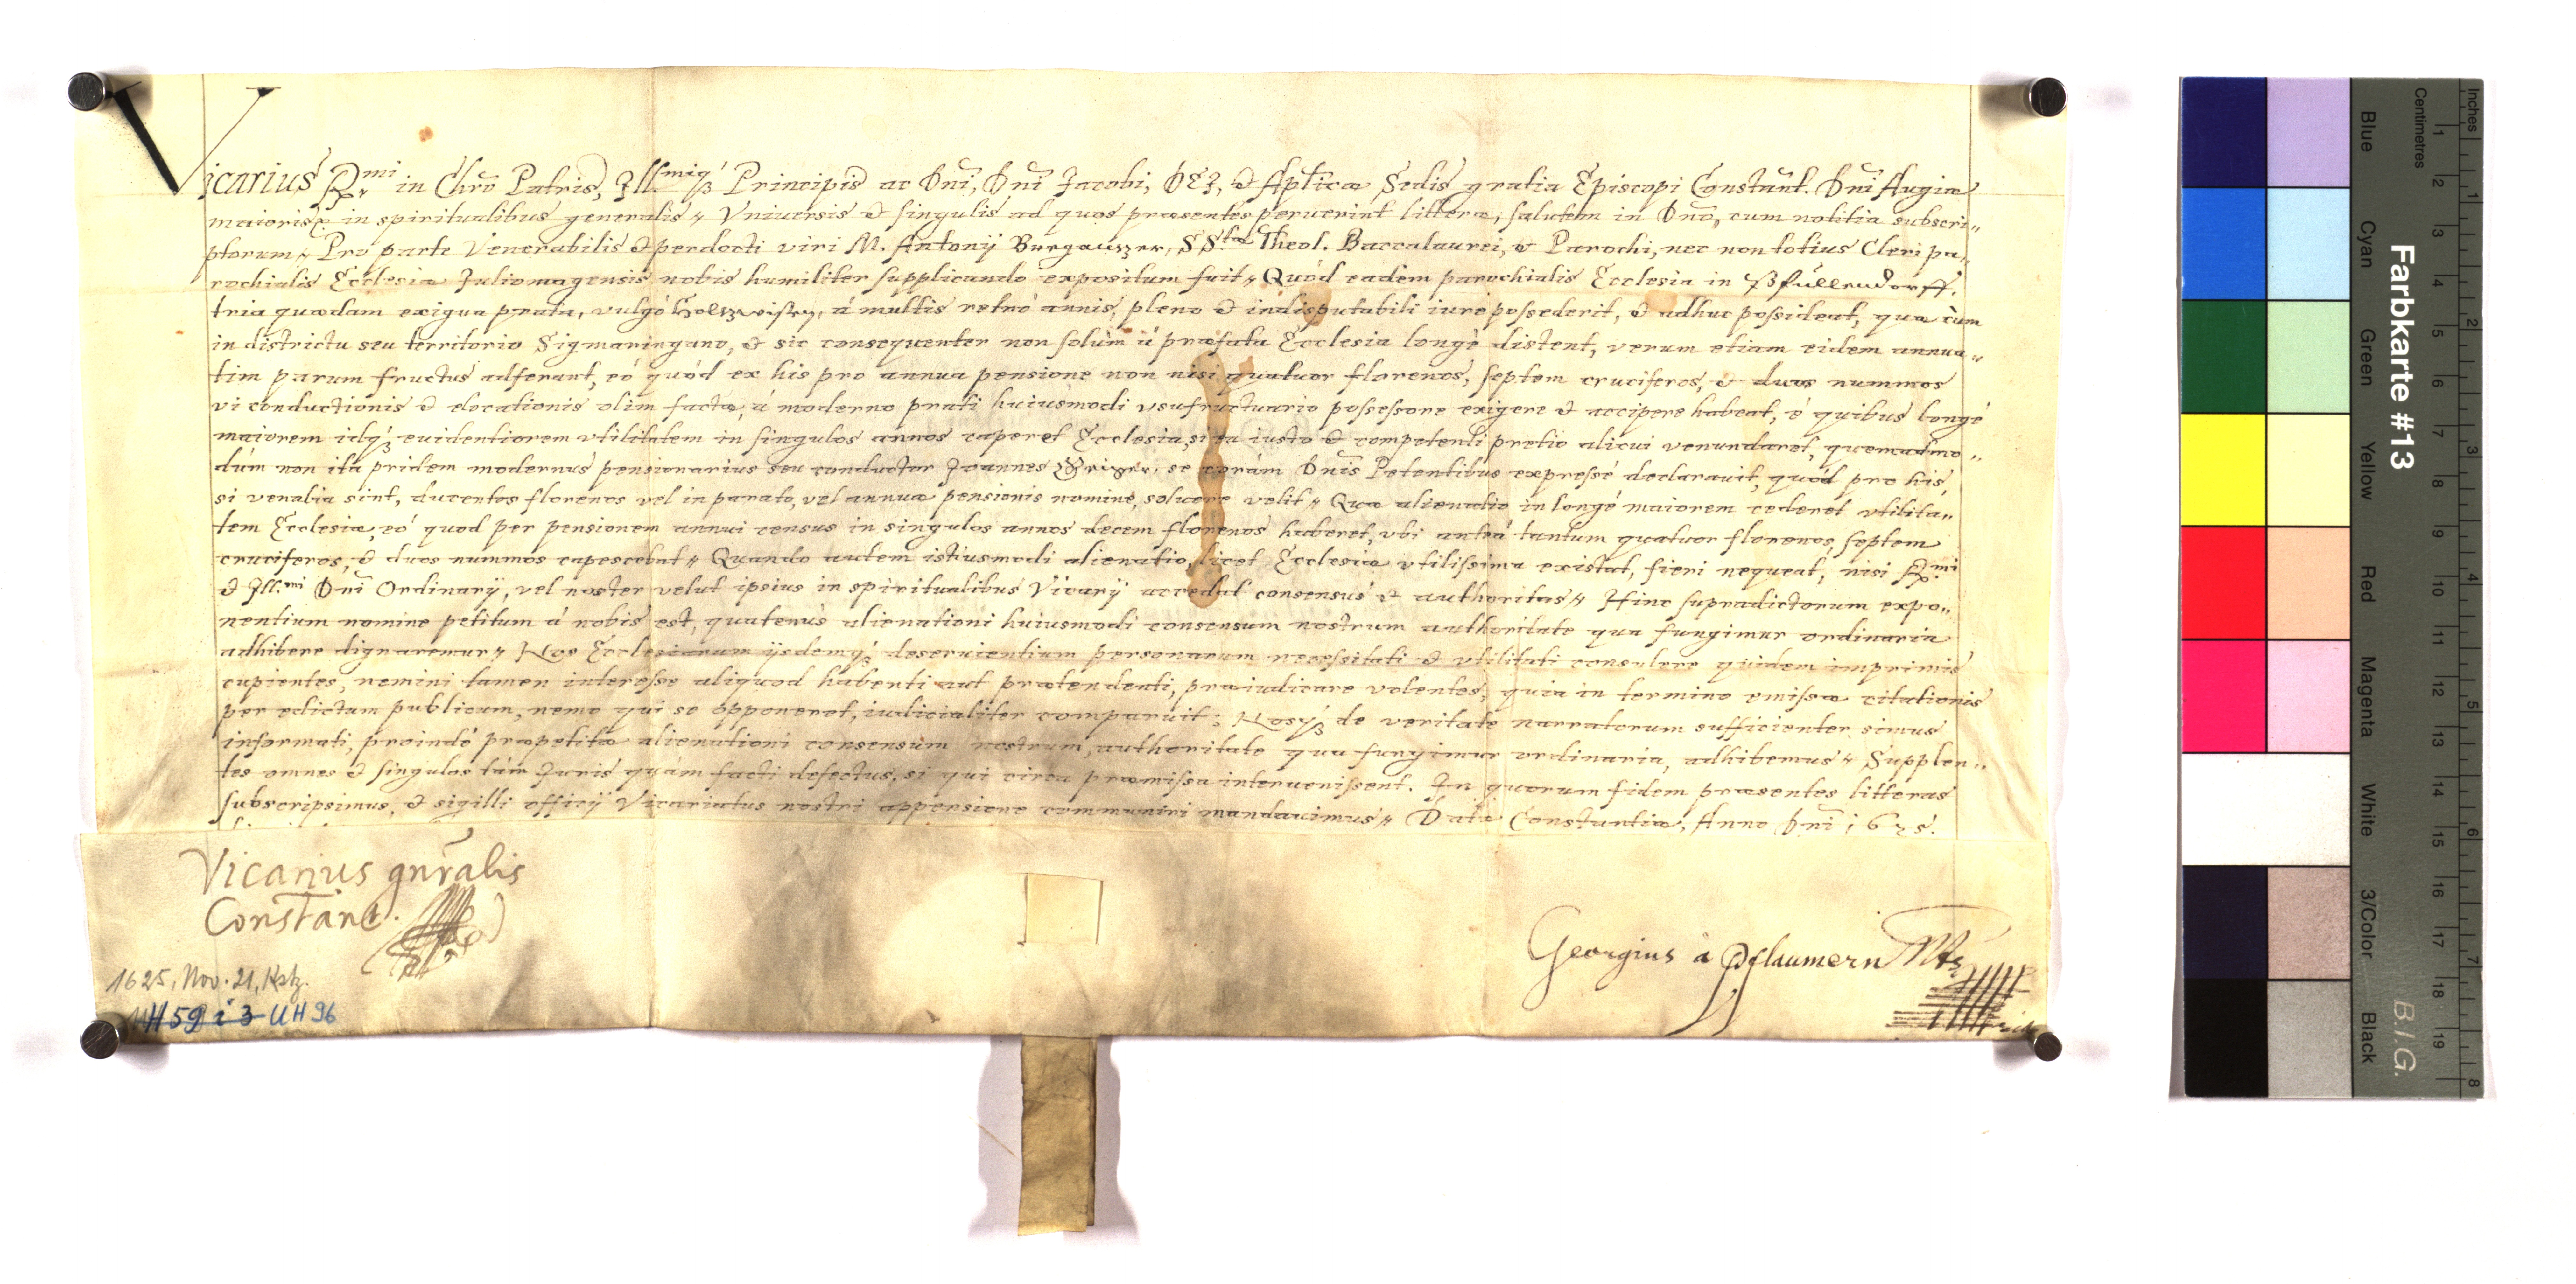 Vicarius Rmi in Chro Patris, Illmiq́ꝫ Principis ac Dni, Dni Jacobi, DEI, & Aplicæ Sedis gratia Episcopi Constant. Dni Augiæ
maioris in spiritualibus generalis. Vniuersis & singulis ad quos præsentes peruenerint litteræ, salutem in Dno, cum notitia subscri-
ptorum. Pro parte Venerabilis & perdocti viri M. Antonij Burgauer, SS.tæ Theol. Baccalaurei, & Parochi, nec non totius Cleri pa-
rochialis Ecclesiæ Juliomagensis nobis humiliter supplicando expositum fuit. Quòd eadem parochialis Ecclesia in Pfullendorff,
tria quædam exigua prata, vulgò Holtzwisen, à multis retrò annis, pleno & indisputabili iure possederit, & adhuc possideat, quæ cùm
in districtu seu territorio Sigmaringano, & sic consequenter non solùm à præfata Ecclesia longè distent, verum etiam eidem annua-
tim parum fructus adferant, eò quòd ex his pro annua pensione non nisi quatuor florenos, septem cruciferos, & duos nummos
vi conductionis & elocationis olim factæ, à moderno prati huiusmodi vsufructuario possessore exigere & accipere habeat, è quibus longè
maiorem idq́ꝫ euidentiorem vtilitatem in singulos annos caperet Ecclesia, si ea iusto & competenti pretio alicui venundaret, quemadmo-
dùm non ità pridem modernus pensionarius seu conductor Joannes se coràm Dnis Petentibus expressè declarauit, quòd pro his,
si venalia sint, ducentos florenos vel in parato, vel annuæ pensionis nomine, soluere velit. Quæ alienatio in longè maiorem cederet vtilita-
tem Ecclesiæ, eò quod per pensionem annui census in singulos annos decem florenos haberet, vbi anteà tantum quatuor florenos, septem
cruciferos, & duos nummos capescebat. Quando autem istiusmodi alienatio, licet Ecclesiæ vtilissima existat, fieri nequeat, nisi Rmi
& Ill.mi Dni Ordinarij, vel noster velut ipsius in spiritualibus Vicarij accedat consensus & authoritas. Hinc supradictorum expo-
nentium nomine petitum à nobis est, quatenùs alienationi huiusmodi consensum nostrum authoritate qua fungimur ordinaria
adhibere dignaremur. Nos Ecclesiarum ijsdemq́ꝫ deseruientium personarum necessitati & vtilitati consulere quidem imprimis
cupientes, nemini tamen interesse aliquod habenti aut prætendenti, præiudicare volentes, quia in termino emissæ citationis
per edictum publicum, nemo qui se opponeret, iudicialiter comparuit; Nosq́ꝫ de veritate narratorum sufficienter simus
informati, proindè præpetitæ alienationi consensum nostrum, authoritate qua fungimur ordinaria, adhibemus. Supplen-
tes omnes & singulos tàm Juris quàm facti defectus, si qui circa præmissa interuenissent. In quorum fidem præsentes litteras
subscripsimus, & sigilli officij Vicariatus nostri appensione communiri mandauimus. Datæ Constantiæ, Anno Dni 1625.
Vicarius gnralis
Constant.
Georgius à Pflaumern
1625, Nov. 21, Kstz.
UH 59 i 3 UH 96
Farbkarte #13
B.I.G.
Inches
Centimetres
1 2 3 4 5 6 7 8 9 10 11 12 13 14 15 16 17 18 19
1 2 3 4 5 6 7 8
Blue
Cyan
Green
Yellow
Red
Magenta
White
3/Color
Black